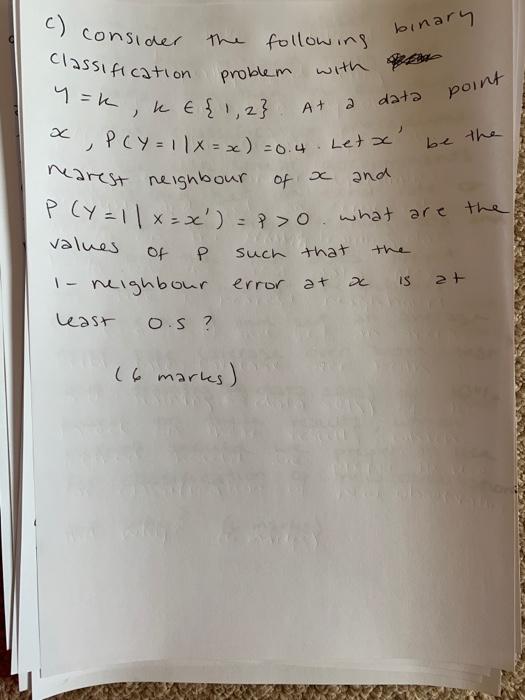 c) consider the following binary
classification problem with
y = k, k ∈ {1,2}. At a data point
x, P(Y=1|X=x) = 0.4. Let x' be the
nearest neighbour of x and
P(Y=1|X=x') = P > 0. what are the
values of P such that the
1-neighbour error at x is at
least 0.5?
(6 marks)